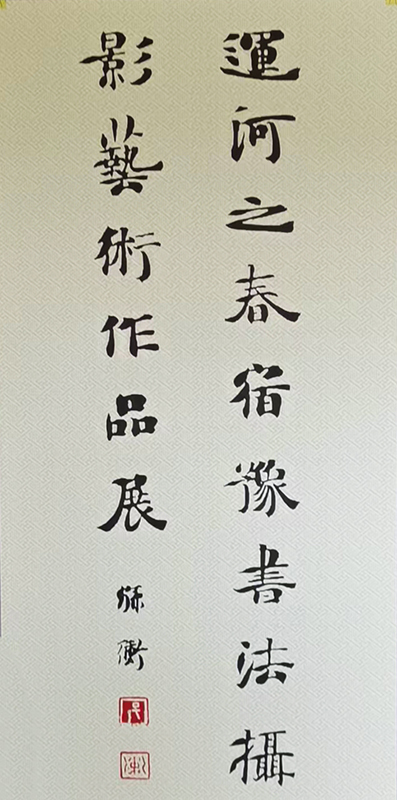 運河之春宿豫書法攝
影藝術作品展